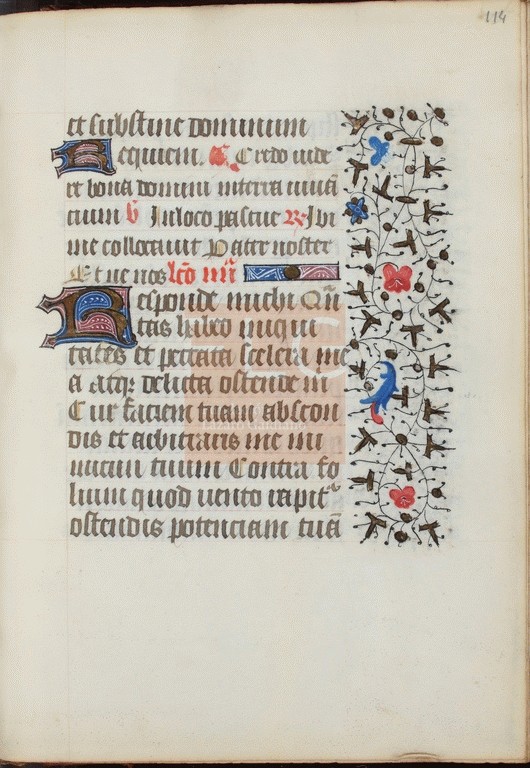 114
et substine dominum
Requiem. A. Credo uide
re bona domini interra uiuē
cium V Inloco pascue R Ibi
me collocauit Pater noster
Et ne nos lcō iiij
Responde michi Qu̅
tas habeo iniqui
tates et peccata scelera me
a atq delicta ostende m
Cur faciem tuam abscon
dis et arbitraris me ini
micum tuum Contra fo
lium quod uento rapit
ostendis potenciam tuā